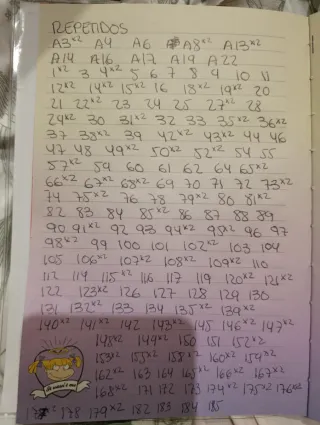 REPETIDOS
A3x2 A4 A6 A8x2 A13x2
A14 A16 A17 A19 A22
1x2 3 4x2 5 6 7 8 9 10 11
12x2 14x2 15x2 16 18x2 19x2 20
21 22x2 23 24 25 27x2 28
29x2 30 31x2 32 33 35x2 36x2
37 38x2 39 42x2 43x2 44 46
47 48 49x2 50x2 52x2 54 55
57x2 59 60 61 62 64 65x2
66x2 67x2 68x2 69 70 71 72 73x2
74 75x2 76 78 79x2 80 81x2
82 83 84 85x2 86 87 88 89
90 91x2 92 93 94x2 95x2 96 97
98x2 99 100 101 102x2 103 104
105 106x2 107x2 108x2 109x2 110
112 114 115x2 116 117 119 120x2 121x2
122 123x2 126 127 128 129 130
131 132x2 133 134 135x2 139x2
140x2 141x2 142 143x2 145 146x2 147x2
148x2 149x2 150 151 152x2
153x2 155x2 158x2 160x2 159x2
162x2 163 164 165x2 166x2 167x2
168x2 171 172 173 174x2 175x2 176x2
178 179x2 182 183 184 185